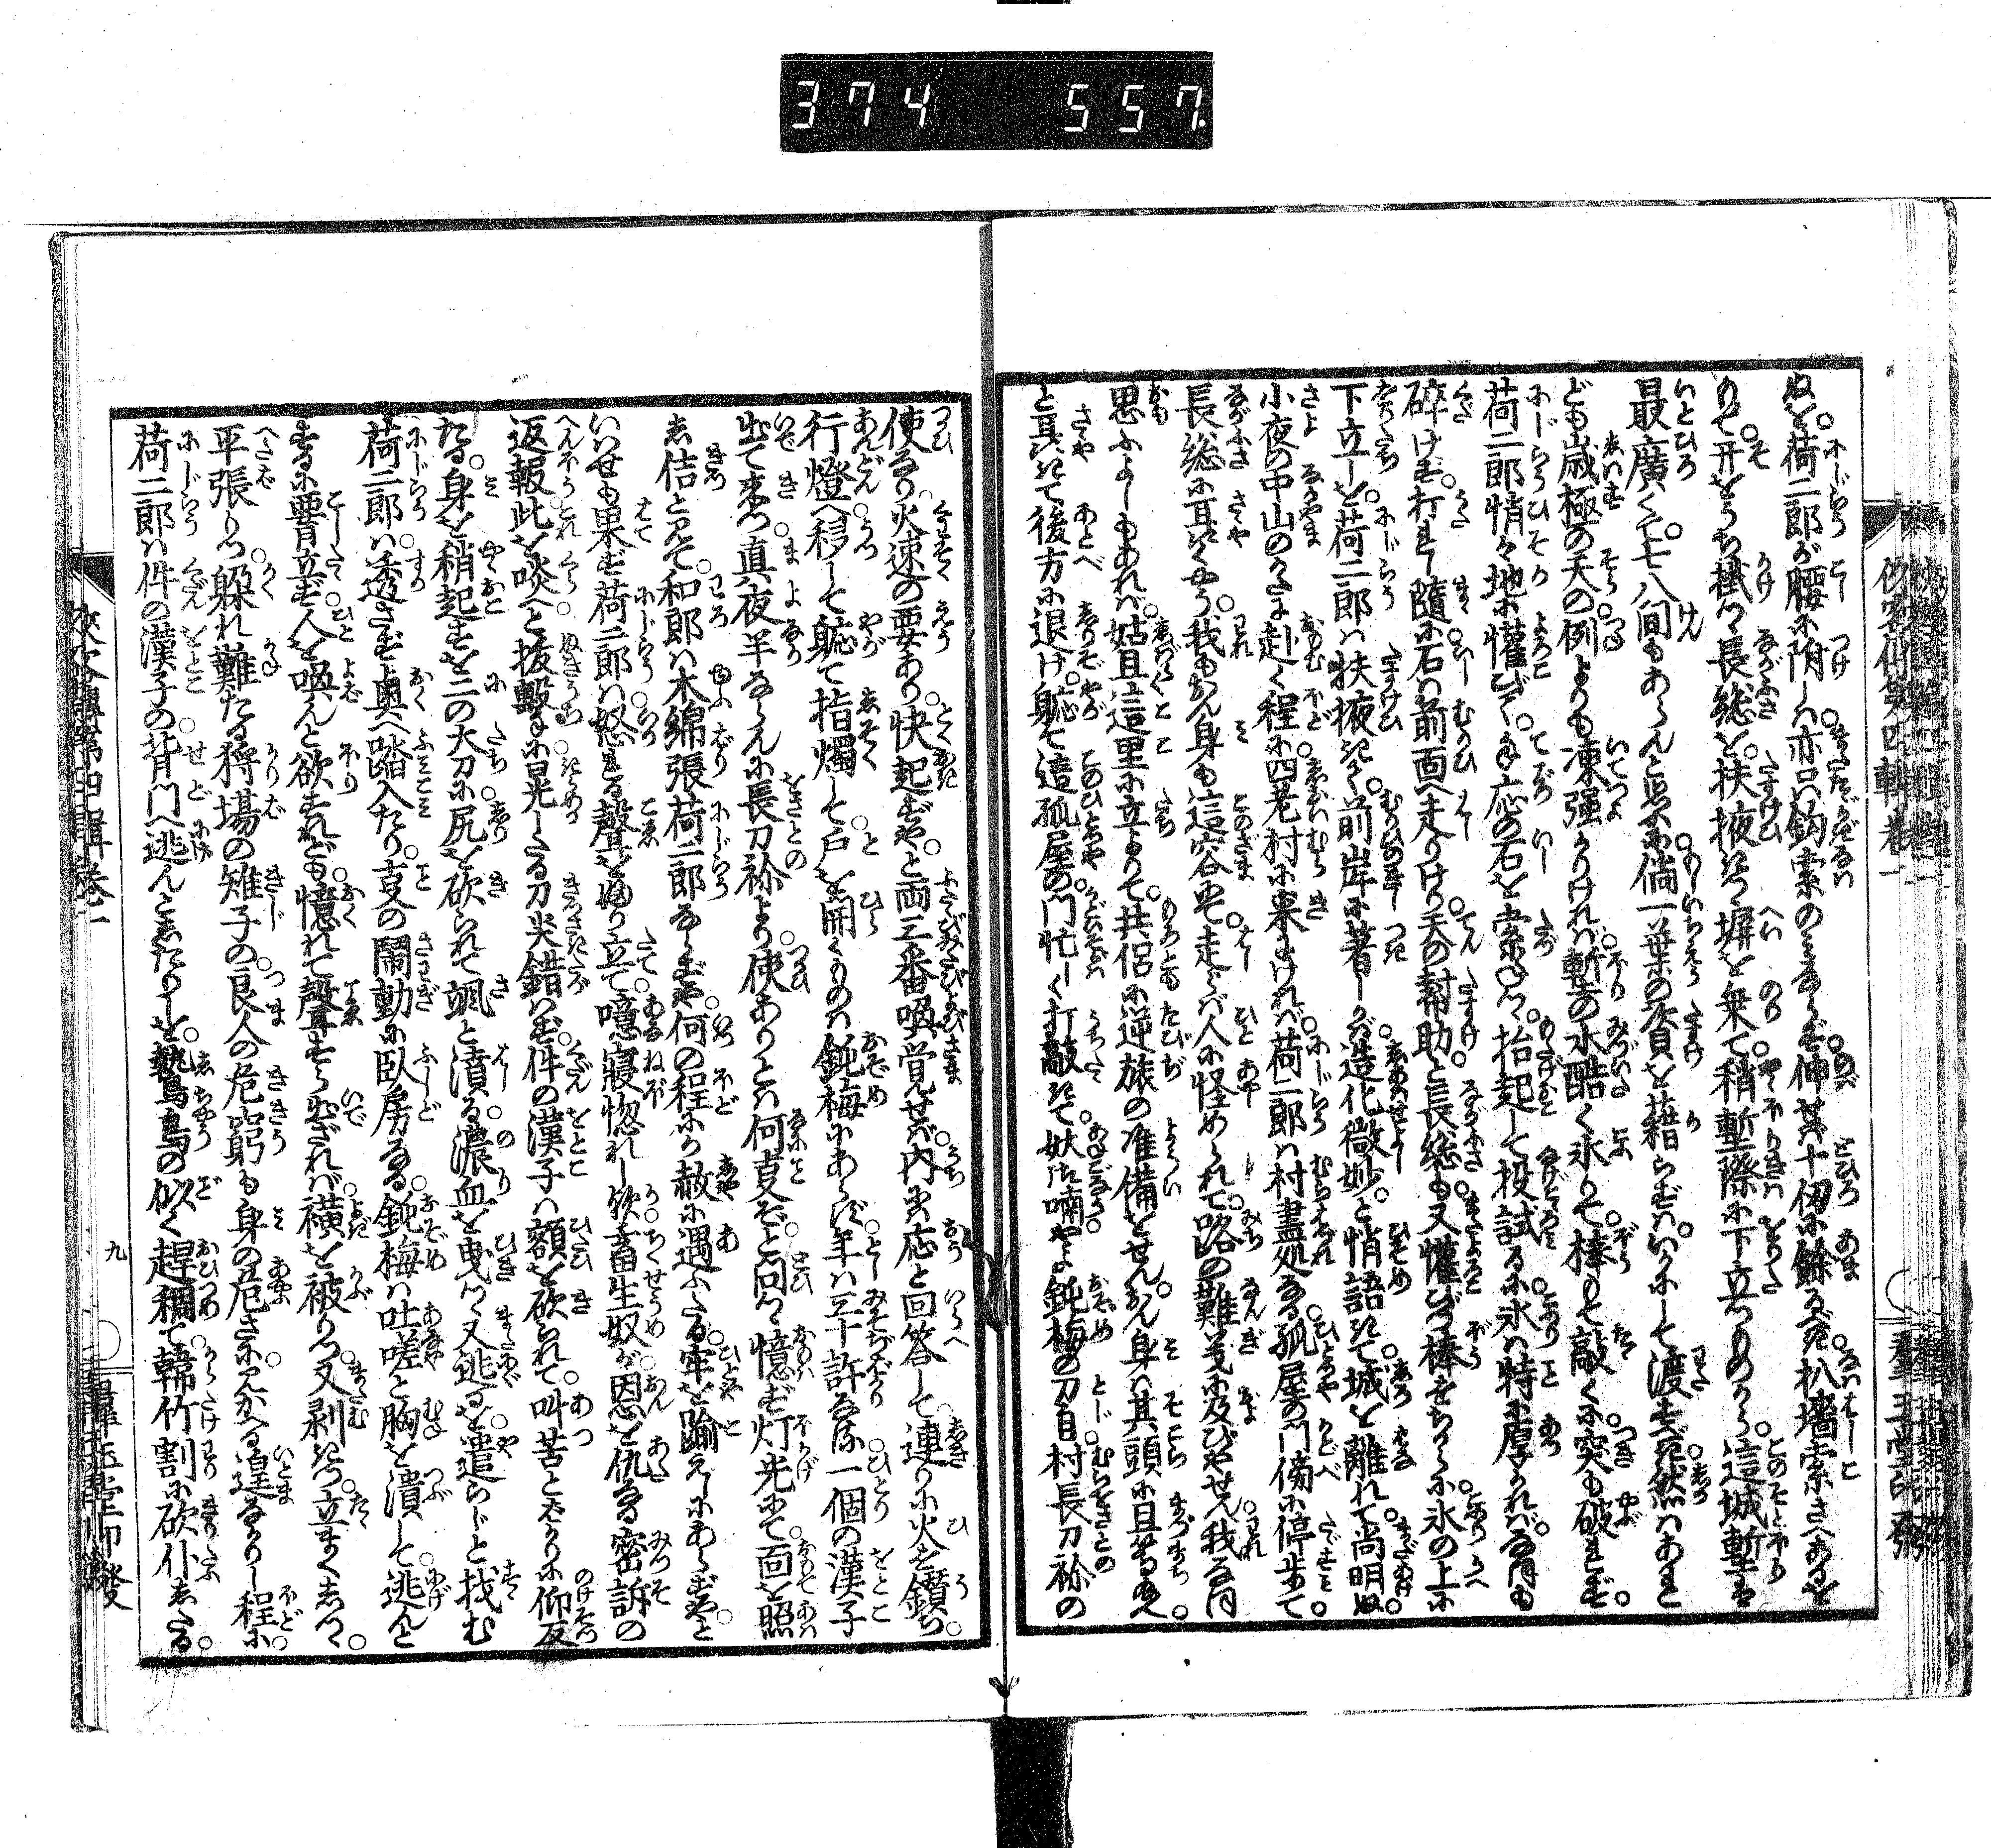 374 557
ぬを。荷二郎が腰に附しハ亦只鈎索のみならず。伸せバ十仭に餘るべき朳墻索さへあるを
もて。开をうち掛つゝ長総を。扶掖つゝ塀を乗て。稍塹際に下立つものから。這城塹ハ
最廣くて。七八間もあらんと思ふに。倘一葉の資を藉らずハ。いかにして渡すべき。然ハあれ
ども嵗極の天の例よりも凍强かりけれバ。塹の水酷く氷りて。棒もて敲くに突も破れず。
荷二郎悄々地に懽びて。手応の石を索ねつゝ。抬起して投試るに氷ハ特に厚かれバ。
碎けず。打れし隨に石ハ前面へ走りけり。天の幇助と長総も又懽びつ。棒をちからに氷の上に
下立しを。荷二郎ハ扶掖きて。前岸に著しかバ。造化微妙。と悄語きて。城を離れて尚明ぬ。
小夜の中山のかたに赴く程に。四老村に来にけれバ。荷二郎ハ村盡処なる。孤屋の門傍に停歩て。
長総に耳語くやう。我もおん身も這容にて。走らバ人に怪められて。路の難義に及びやせん。我
思ふよしもあれバ。姑且這里に立よりて。共侶に逆旅の准備をせん。おん身ハ其頭に且
と耳語きて後方に退け。軈て這孤屋の門忙しく打敲きて。鈍梅の刀自。村長刀祢の
使なり。火速の要あり。快起ずや。と両三番喚覚せバ。内にて応と回答して。連りに火を鑽る。
行燈へ移して軈て指燭して戸を開くものハ鈍梅にあらず。年ハ三十許なる。一個の漢子
出て来つ。真夜半ならんに長刀祢より。使ありとハ何㕝ぞ。と問つゝ憶ず灯光にて。面を照
し佶と見て。和郎ハ木綿張荷二郎ならずや。何の程にか赦に遇ふたる。牢を踰えしにあらずや。と
いはせも果ず荷二郎ハ。怒れる聲をふり立て。噫寢惚れし欤畜生奴が。恩を仇なる密訴の
返報此を啖へ。と拔擊に。晃したる刀尖錯ハず。件の漢子ハ額を砍られて。叫苦とばかりに仰反
たる。身を稍起すを二の大刀に。尻を砍られて颯と濆る。濃血を曳つゝ又逃るを。遣らじと找む
荷二郎ハ。透さず奥へ踏入たり。㕝の鬧動に臥房なる。鈍梅ハ吐嗟と胸を潰して。逃んと
するに腰立ず。人を喚んと欲すれども。憶れて聲すら出ざれバ。横を被りつ又剥きつ。立まくしつゝ。
平張りつ。躱れ難たる狩場の雉子の。良人の危窮も身の厄さに。見かへる遑なかりし程に。
荷二郎ハ件の漢子の。背門へ逃んとしたりしを。鷙鳥の似く趕稠て。幹竹割に砍仆したる。
九